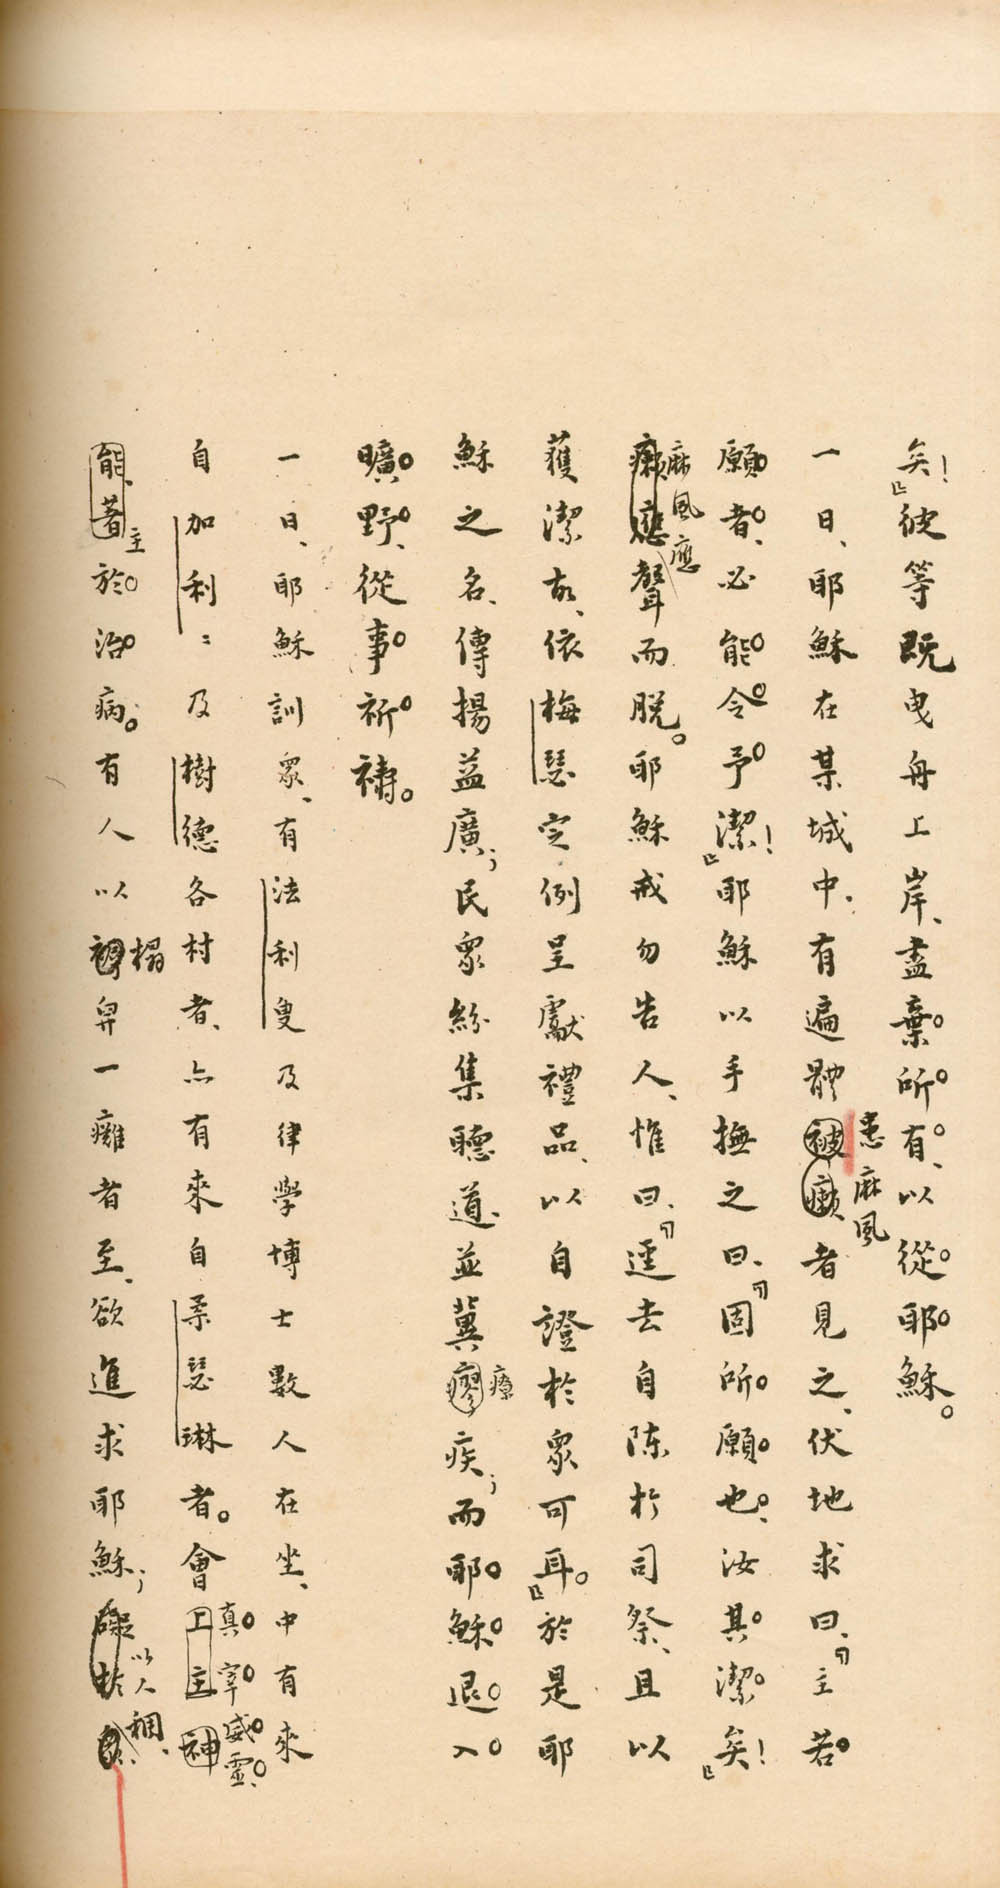 矣！」彼等既曳舟上岸、盡棄所有、以從耶穌。
一日、耶穌在某城中、有遍體被癩者見之、伏地求曰、「主若
患麻風
願者、必能令予潔！」耶穌以手撫之曰、「固所願也、汝其潔矣！」
癩應聲而脫。耶穌戒勿告人、惟曰、「逕去自陳於司祭、且以
麻風應
獲潔故、依梅瑟定例呈獻禮品、以自證於眾可耳。」於是耶
穌之名、傳揚益廣；民眾紛集聽道、並冀瘳疾；而耶穌退入
療
曠野、從事祈禱。
一日、耶穌訓眾、有法利叟及律學博士數人在坐、中有來
自加利利及樹德各村者、亦有來自柔瑟琳者。會上主神
真宰威靈、
能、著於治病。有人以褥舁一癱者至、欲進求耶穌；礙於
主
榻
以人稠、